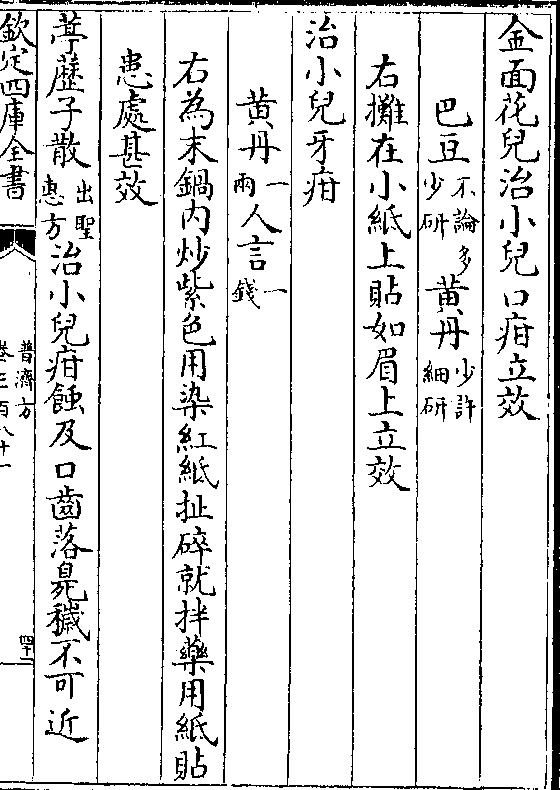 金面花兒治小兒口疳立效
巴豆不論多少研黄丹少許細研
右攤在小紙上貼如眉上立效
治小兒牙疳
黄丹一兩人言一錢
右為末鍋内炒紫色用染紅紙扯碎就拌藥用紙貼
患處甚效
葶藶子散出聖惠方治小兒疳蝕及口齒落臭穢不可近
欽定四庫全書
普濟方
卷三百八十一
四十二